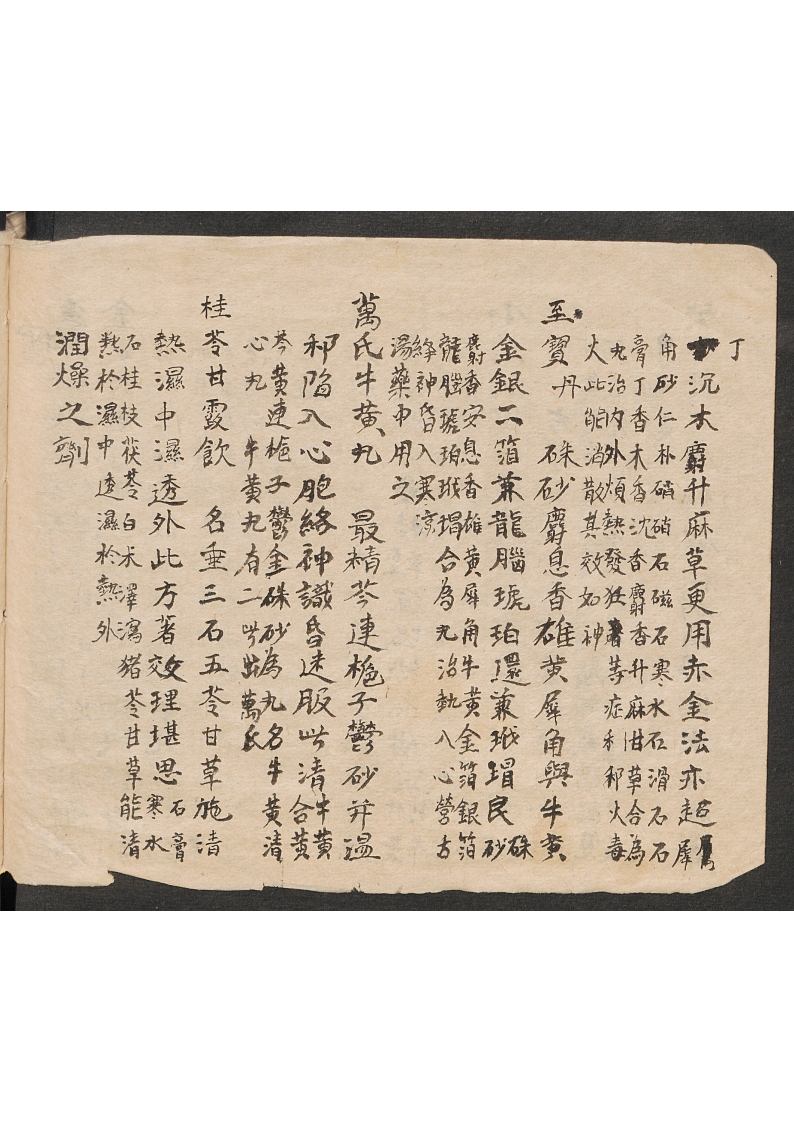 丁
沉木麝升麻草更用赤金法亦超 犀
角砂仁朴硝硝石磁石寒水石滑石石
膏丁香木香沈香麝香升麻甘草合為
丸治內外煩熱發狂等症和邪火毒
火此能消散其效如神
至寶丹 硃砂麝息香雄黃犀角與牛黃
金銀二箔兼龍腦琥珀還兼玳瑁民 硃砂
麝香安息香雄黃犀角牛黃金箔銀箔
龍腦琥珀玳瑁合為丸治熱入心營古
絳神昏入寒涼
湯藥中用之
萬氏牛黃丸 最精芩連梔子鬱砂并溫
邪陷入心胞絡神識昏迷服此清 牛黃合黃
芩黃連梔子鬱金硃砂為丸名牛黃清
心丸 牛黃丸有二此萬氏
桂苓甘露飲 名垂三石五苓甘草施清
熱濕中濕透外此方著效理堪思 石膏寒水
石桂枝茯苓白朮澤瀉豬苓甘草能清
熱於濕中透濕於熱外
潤燥之劑